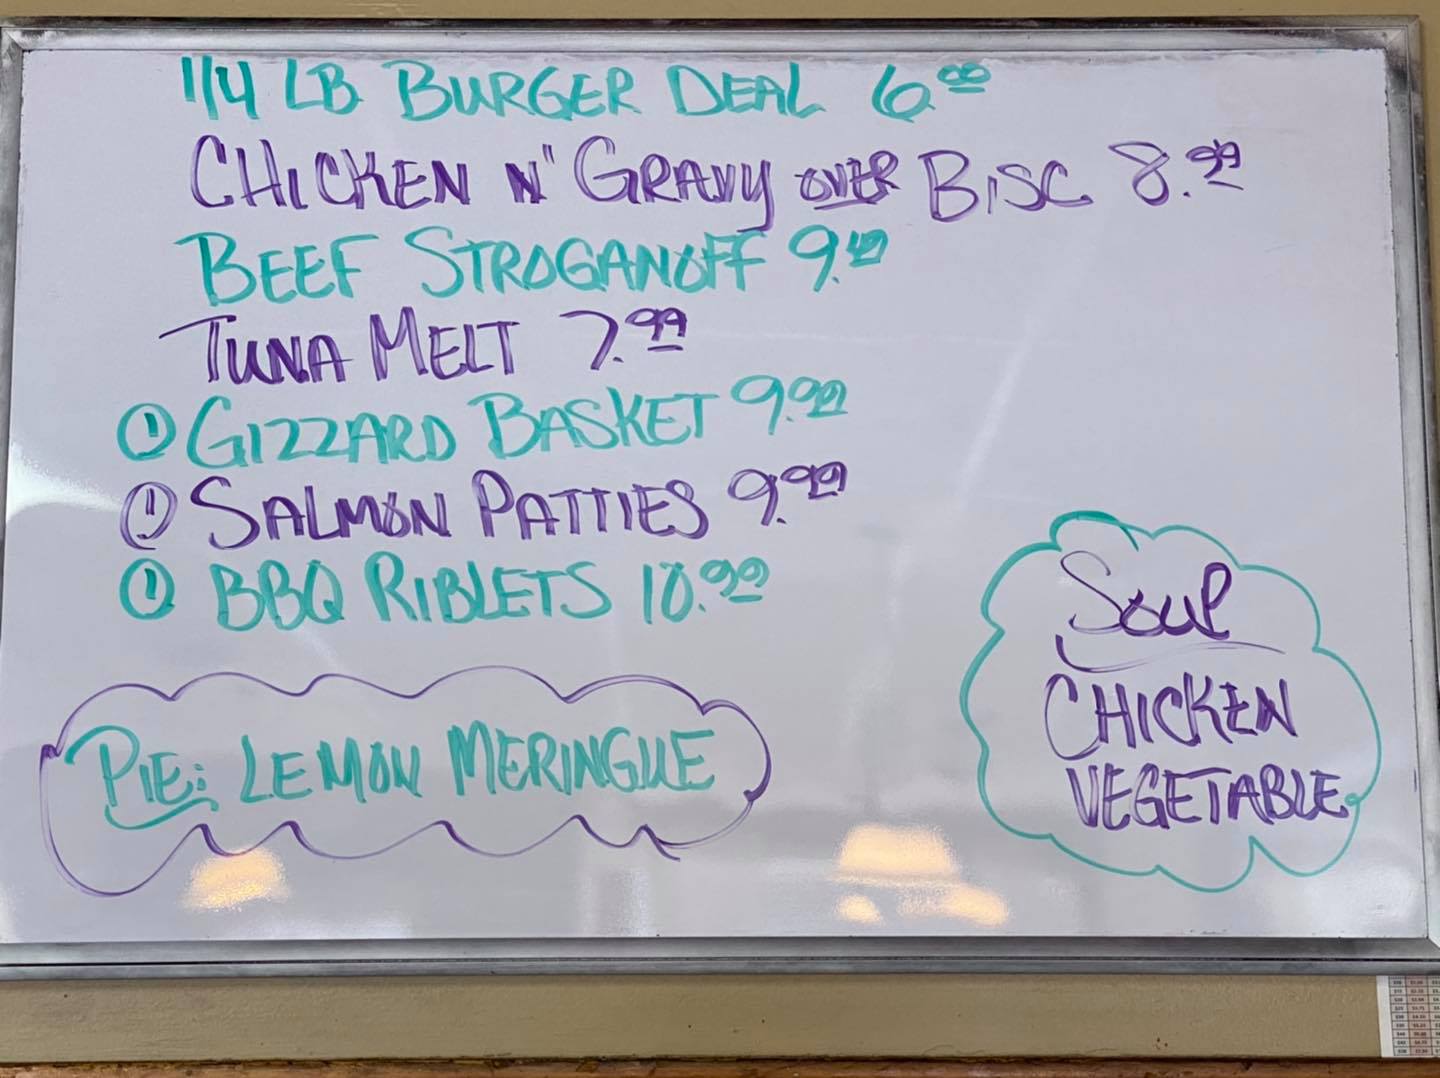 1/4 LB BURGER DEAL 6.00
CHICKEN N' GRAVY OVER BISC 8.99
BEEF STROGANOFF 9.49
TUNA MELT 7.99
① GIZZARD BASKET 9.99
① SALMON PATTIES 9.99
① BBQ RIBLETS 10.99
PIE: LEMON MERINGUE
SOUP
CHICKEN
VEGETABLE